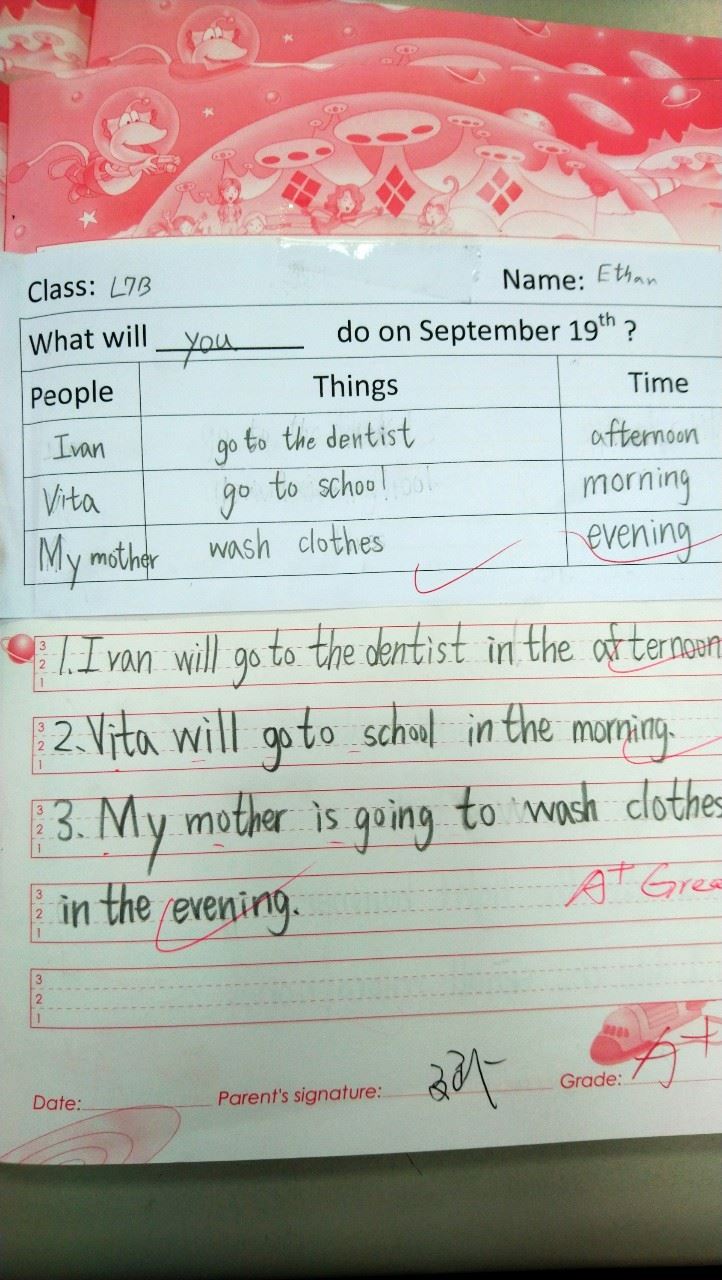 Class: L7B Name: Ethan
What will you do on September 19th ?
People Things Time
Ivan go to the dentist afternoon
Vita go to school morning
My mother wash clothes evening
3
2
1
1. Ivan will go to the dentist in the afternoon
3
2
1
2. Vita will go to school in the morning.
3
2
1
3. My mother is going to wash clothes
3
2
1
in the evening.
A+ Grea
3
2
1
Date: Parent's signature: Grade: A+